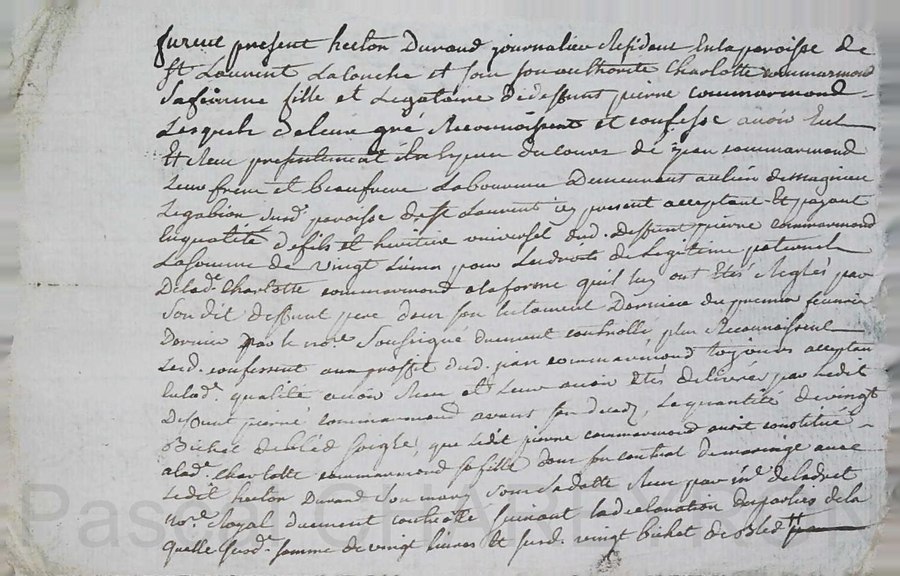 furent present hecton Durand journalier Residant En la paroisse de
St Laurent Lacouche et sous son authorité Charlotte commarmond
Sa femme fille et Legataire de deffunt pierre commarmond
Lesquels de leur gré Reconnoissent et confesse avoir Eu
Et Receu presentement du de jean commarmond
Leur frere et beaufrere Laboureur Demeurant au lieu de magnieu
Legabion surd. paroisse de St Laurent icy present acceptant Et payant
En qualité de fils et heritier universel dud. deffunt pierre commarmond
La somme de vingt Livres pour Les droits de Legitime paternels
De lade. Charlotte commarmond a la forme qu'il luy ont Etés Reglés par
Son dit deffunt pere dans son testament Dernier du premier fevrier
Dernier par le nore. Soussigné duement controllé, plus Reconnoissent
Lesd. confessent au proffit dud. jean commarmond toujours acceptan
En lade. qualité avoir Receu et Leur avoir Etés delivrés par Ledit
Deffunt pierre commarmond avant son deces, La quantité de vingt
Bichet de bled seigle, que Ledit pierre commarmond avoit constitué
a lade. Charlotte commarmond sa fille dans son contrat de mariage avec
Ledit hecton Durand Son mary sous Sa datte Receu par
nore. Royal duement controllé suivant la declaration des parties de la
quelle surde. somme de vingt livres et surd. vingt bichet de Bled
Pascal CHARLYRON